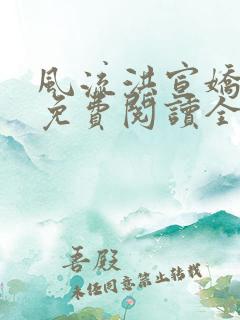 風流洪宣嬌
免費閱讀全
吾殿
未經同意禁止轉載